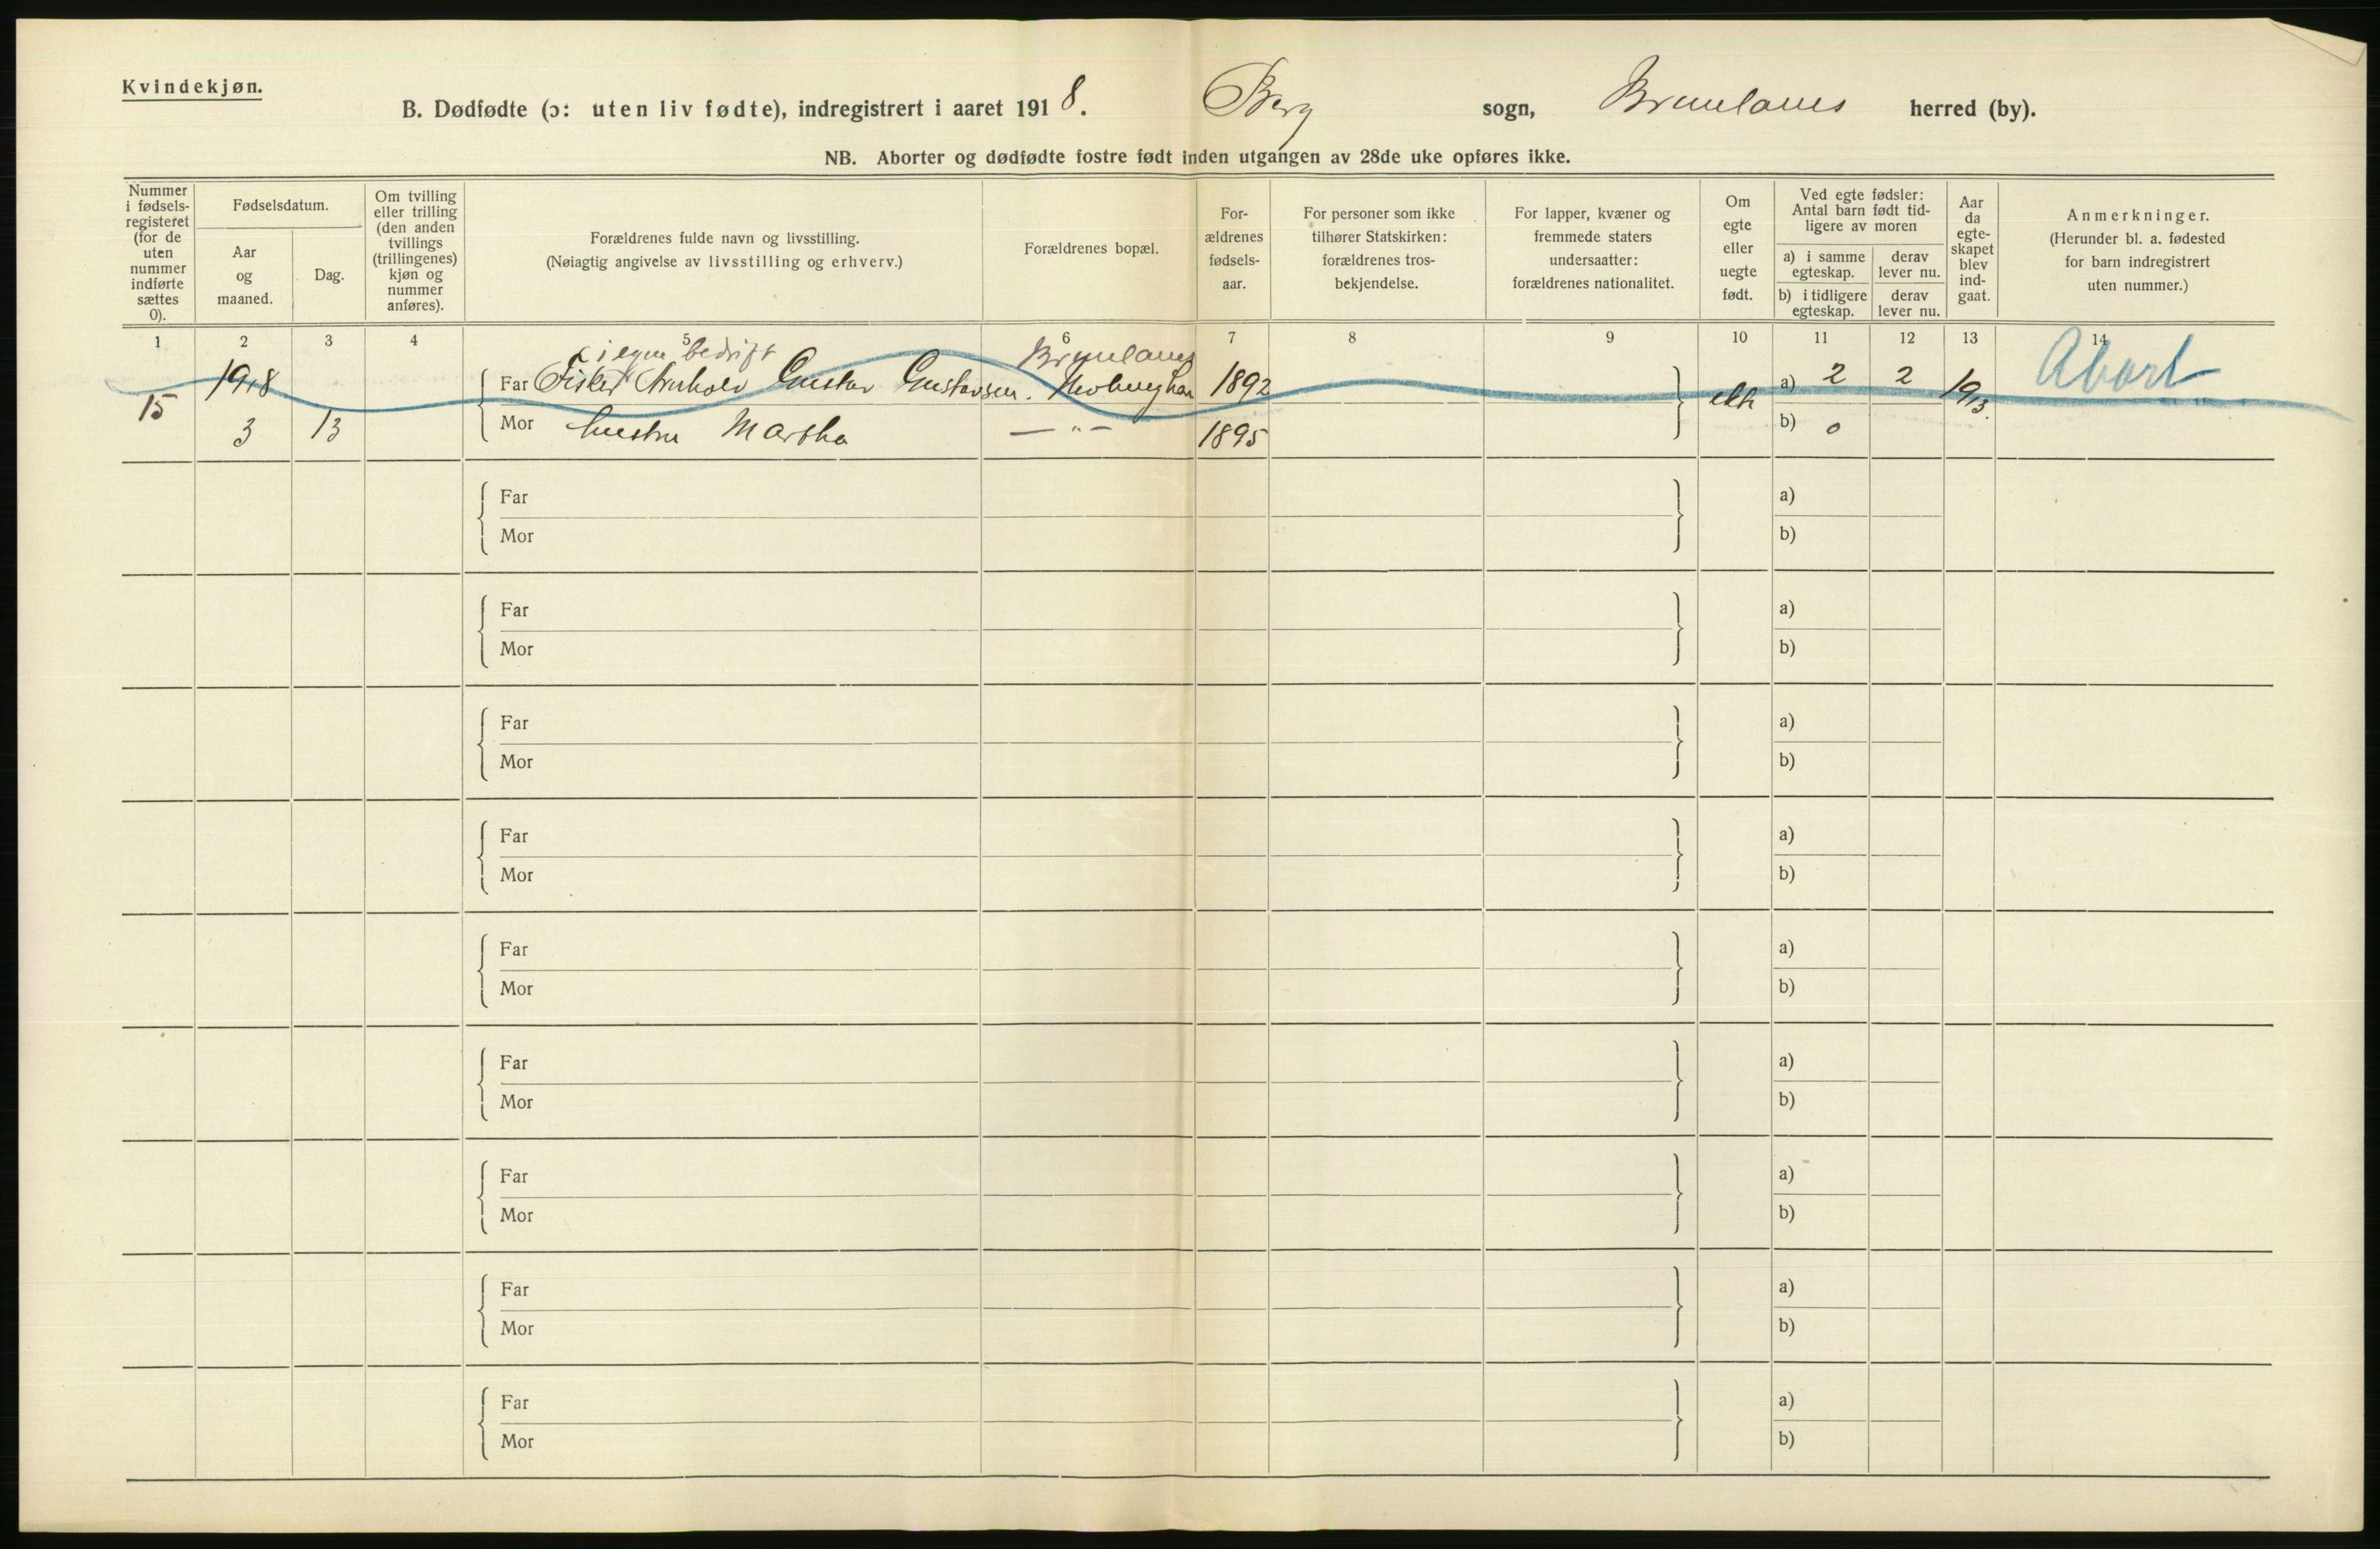 Kvindekjøn.
B. Dødfødte (ɔ: uten liv fødte), indregistrert i aaret 1918. Berg sogn, Brunlanes herred (by).
NB. Aborter og dødfødte fostre født inden utgangen av 28de uke opføres ikke.
Nummer i fødsels-registeret (for de uten nummer indførte sættes 0).
Fødselsdatum.
Aar og maaned.
Dag.
Om tvilling eller trilling (den anden tvillings (trillingenes) kjøn og nummer anføres).
Forældrenes fulde navn og livsstilling.
(Nøiagtig angivelse av livsstilling og erhverv.)
Forældrenes bopæl.
For-ældrenes fødsels-aar.
For personer som ikke tilhører Statskirken: forældrenes tros-bekjendelse.
For lapper, kvæner og fremmede staters undersaatter: forældrenes nationalitet.
Om egte eller uegte født.
Ved egte fødsler: Antal barn født tid-ligere av moren
a) i samme egteskap.
derav lever nu.
b) i tidligere egteskap.
derav lever nu.
Aar da egte-skapet blev ind-gaat.
Anmerkninger.
(Herunder bl. a. fødested for barn indregistrert uten nummer.)
1 2 3 4 5 6 7 8 9 10 11 12 13 14
i egen bedrift Brunlanes Abort
15 1918 Far Fisker Gustav Gustavsen. 1892 ekte a) 2 2 1913.
3 13 Mor hustru Martha —"— 1895 b) 0
Far a)
Mor b)
Far a)
Mor b)
Far a)
Mor b)
Far a)
Mor b)
Far a)
Mor b)
Far a)
Mor b)
Far a)
Mor b)
Far a)
Mor b)
Far a)
Mor b)